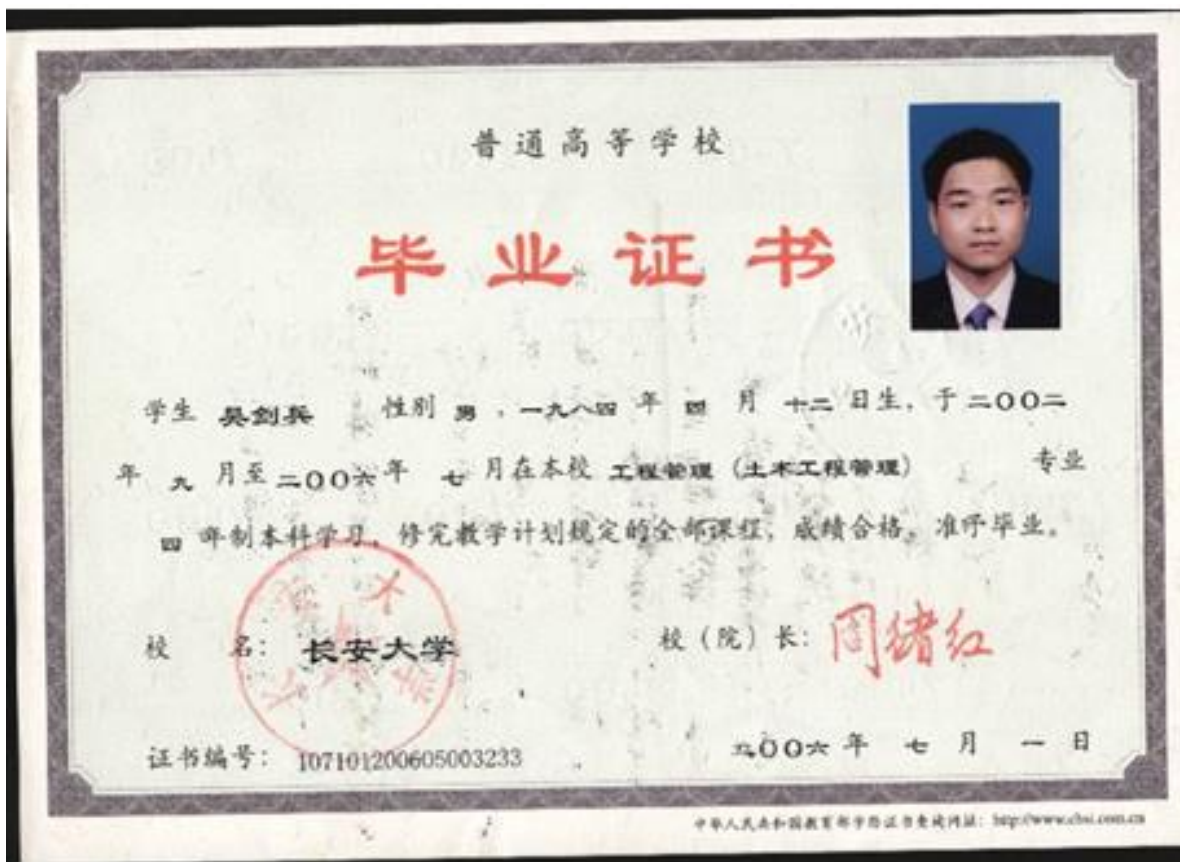 普通高等学校
毕业证书
学生 吴剑兵 性别 男 ，一九八四 年 四 月 十二 日生，于 二〇〇二
年 九 月至 二〇〇六 年 七 月在本校 工程管理（土木工程管理） 专业
四 年制本科学习，修完教学计划规定的全部课程，成绩合格，准予毕业。
校 名： 长安大学 校（院）长： 周绪红
证书编号： 107101200605003233 二〇〇六 年 七 月 一 日
中华人民共和国教育部学历证书查询网址：http://www.chsi.com.cn